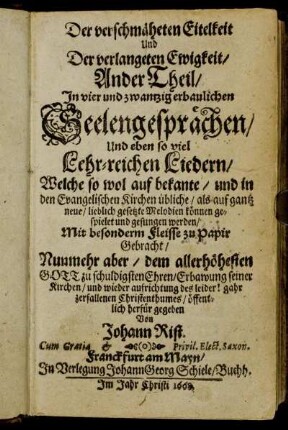 Der verschmäheten Eitelkeit
Und
Der verlangeten Ewigkeit/
Ander Theil/
In vier und zwantzig erbaulichen
Seelengesprächen/
Und eben so viel
Lehr-reichen Liedern/
Welche so wol auf bekante/ und in
den Evangelischen Kirchen übliche/ als auf gantz
neue/ lieblich gesetzte Melodien können ge-
spielet und gesungen werden/
Mit besonderm Fleisse zu Papir
Gebracht/
Nunmehr aber/ dem allerhöhesten
GOTT zu schuldigsten Ehren/ Erbawung seiner
Kirchen/ und wieder aufrichtung des leider! gahr
zerfallenen Christenthumes/ öffent-
lich herfür gegeben
Von
Johann Rist.
Cum Gratia & Privil. Elect. Saxon.
Franckfurt am Mayn/
In Verlegung Johann Georg Schiele/ Buchh.
Im Jahr Christi